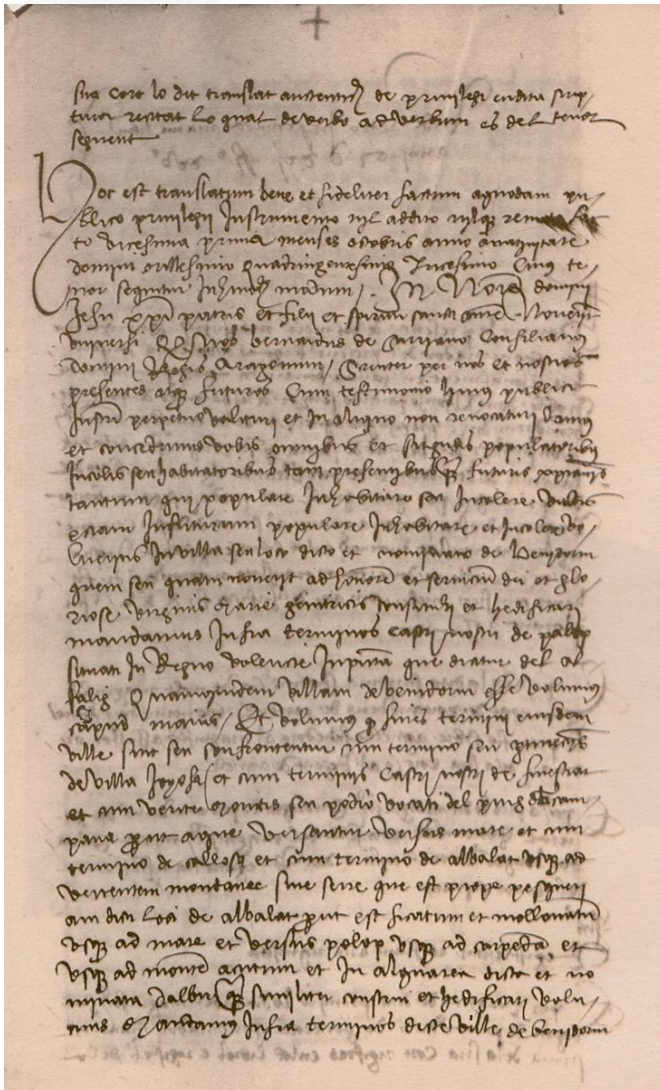 sua cort lo dit translat autentich de privilegi endita scrip-
tura recitat lo qual de verbo ad verbum es del tenor
seguent
Hoc est translatum bene et fideliter factum a quodam pu-
blico privilegii Instrumento nil addito nilque remoto
to vicesima prima menses octobris anno a nativitate
domini millesimo quadringentesimo tricesimo Cuius te-
nor sequitur In hunc modum / In Noie domini
Jesu xpi patris et filii et spiritus sancti amen Noverint
universi Q nos bernardus de sarriano Consiliarius
domini Regis Aragonum / Scienter per nos et nostros
presentes atque futuros Cum testimonio huius publici
Instri perpetuo valituri et In aliquo non revocaturi Damus
et concedimus vobis omnibus et singulis populatoribus
Incolis seu habitatoribus tam presentibus q futuris xpianis
tantum qui populare Inhabitare seu Incolere vultis
etiam Infuturum populare Inhabitare et Incolere vo-
lueritis In villa seu loco dicto et nominato de benidorm
quem seu quam noverit ad honorem et servicium dei et glo-
riose virginis marie genitricis construhi et hedificari
mandamus Infra terminos castri nostri de polop
situati In Regno valencie In punta que dicitur del al
falig Quamquidem villam de benidorm esse volumus
caput maius / Et volumus q fines termini eiusdem
ville sint seu confrontentur cum termino seu
de villa Joyosa et cum terminis castri nostri de finestrat
et cum verite montis seu podio vocati del puig dcam-
pana prout aque versantur versus mare et cum
termino de callosa et cum termino de albalat usque ad
vertentem montanee sive serre que est prope
am dicti loci de albalat prout est ficatum et mollonatum
usque ad mare et versus polop usque ad carpeda et
usque ad montem acutum et In alquarea dicta et no
minata dalbir q similiter construi et hedificari volu-
mus Mandamus Infra terminos dicte ville de benidorm